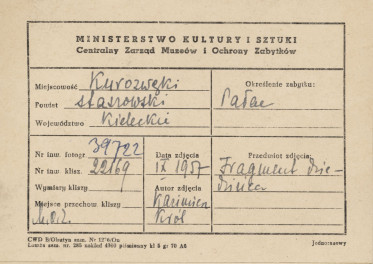 MINISTERSTWO KULTURY I SZTUKI
Centralny Zarząd Muzeów i Ochrony Zabytków
Miejscowość Kurozwęki
Powiat staszowski
Województwo Kieleckie
Określenie zabytku:
Pałac
Nr inw. fotogr. 39722
Nr inw. klisz. 22169
Wymiary kliszy
Miejsce przechow kliszy
Data zdjęcia
IX 1957
Autor zdjęcia
Kazimierz
Król
Przedmiot zdjęcia:
Fragment dzie-
dzińca
CWD
Jednorazowy